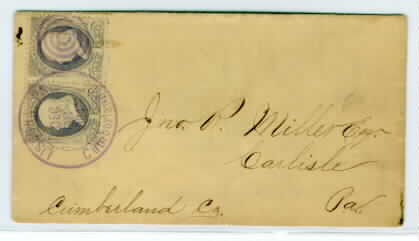 Jno. P. Miller Esqr.
Carlisle
Cumberland Co.
Pa.